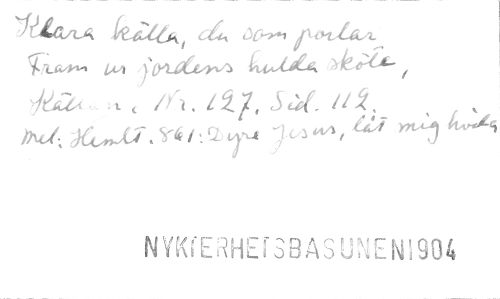 Klara källa, du som porlar
Fram ur jordens hulda sköte,
Källan. Nr. 127. Sid. 112.
Mel: Hemlt. 861: Dyre Jesus, låt mig hvila
NYKTERHETSBASUNEN 1904